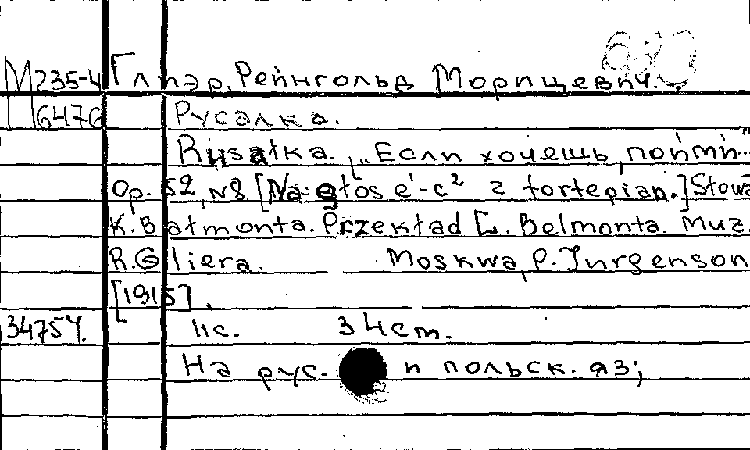 М235-4 Глиэр, Рейнгольд Морицевич.
М647б Русалка.
Rusałka. „Если хочешь, пойми...
Op. 52, N8 [Na głos e'-c² z fortepian.] Słowa
K. Balmonta. Przekład L. Belmonta. Muz.
R. Gliera. Moskwa, P. Jurgenson
[1915].
3475У. 11с. 34ст.
На рус. и польск. яз;